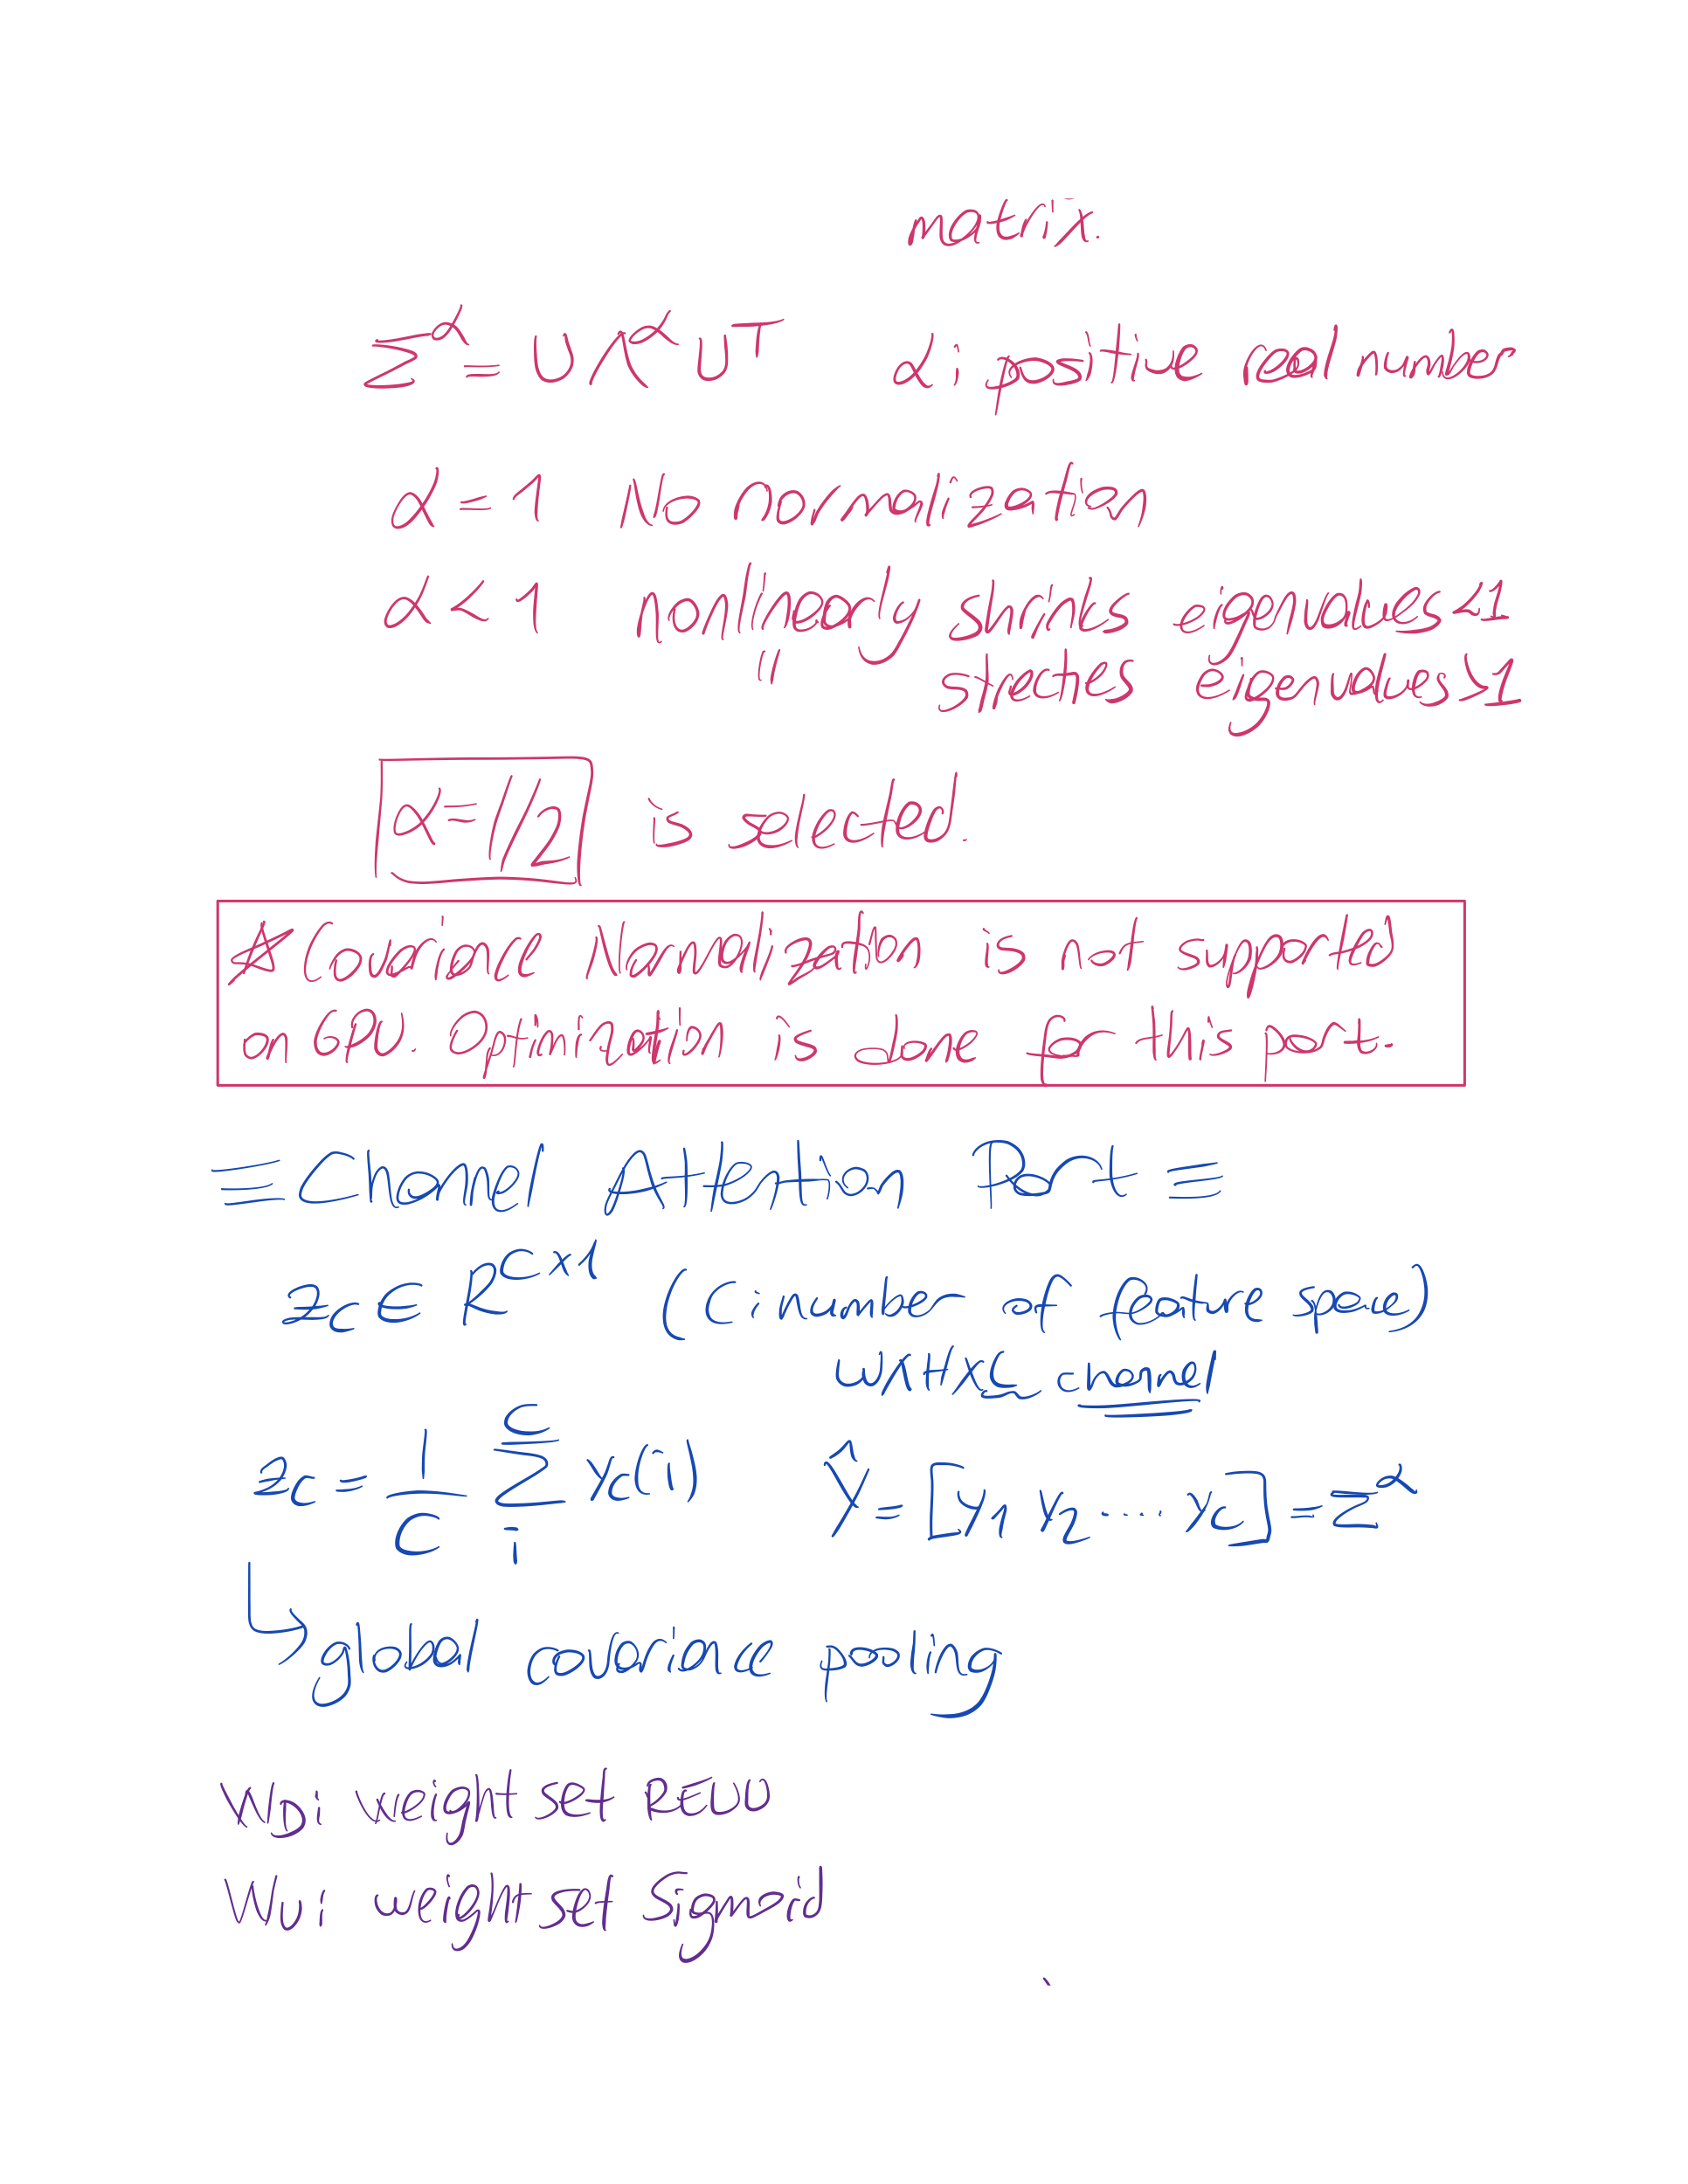 matrix.
Σ^α = U Λ^α U^T α: positive real number
α = 1 No normalization
α < 1 nonlinearly shrinks eigenvalues <1
" strecties eigenvalues >1
α=1/2 is selected.
☆ Covariance Normalization is not supported
on GPU. Optimization is done for this part.
≡ Channel Attention Part ≡
z_c ∈ R^{C×1} (C: number of feature space)
WXHXC channel
z_c = 1/C Σ_i^C y_c(i) Ŷ = [y_1 y_2 .... y_c] = Σ^α
↳ global covariance pooling
W_D: weight set RELU
W_U: weight set Sigmoid